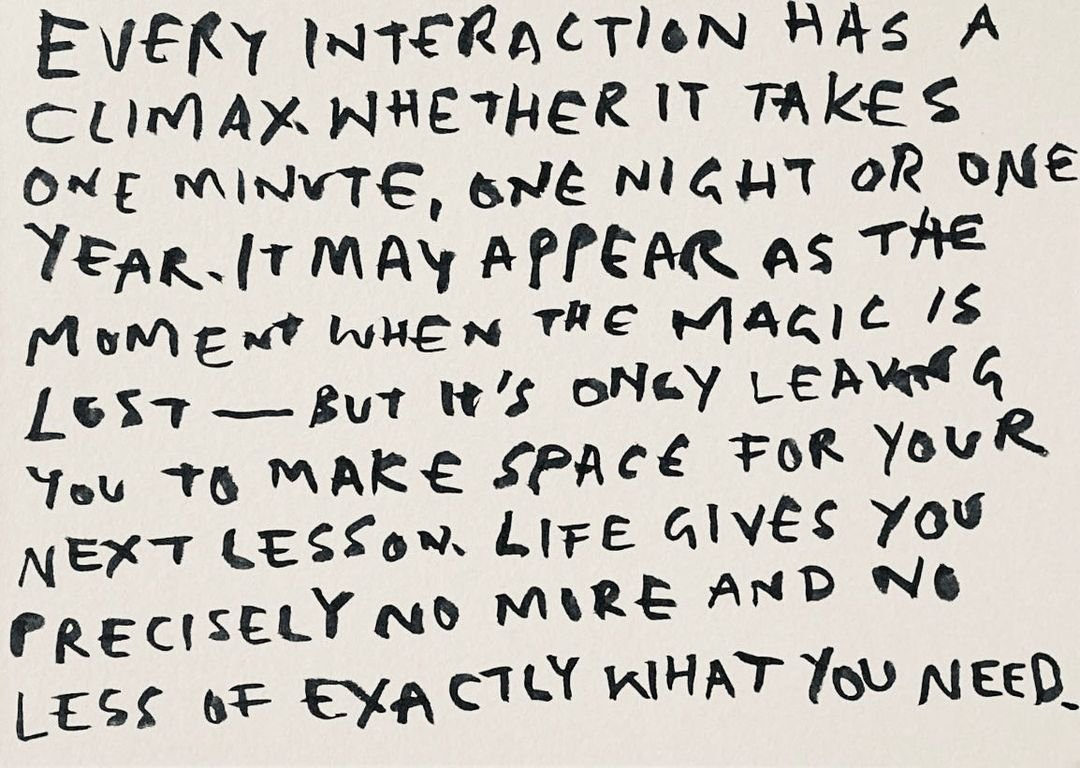 EVERY INTERACTION HAS A
CLIMAX. WHETHER IT TAKES
ONE MINUTE, ONE NIGHT OR ONE
YEAR. IT MAY APPEAR AS THE
MOMENT WHEN THE MAGIC IS
LOST — BUT IT'S ONLY LEAVING
YOU TO MAKE SPACE FOR YOUR
NEXT LESSON. LIFE GIVES YOU
PRECISELY NO MORE AND NO
LESS OF EXACTLY WHAT YOU NEED.